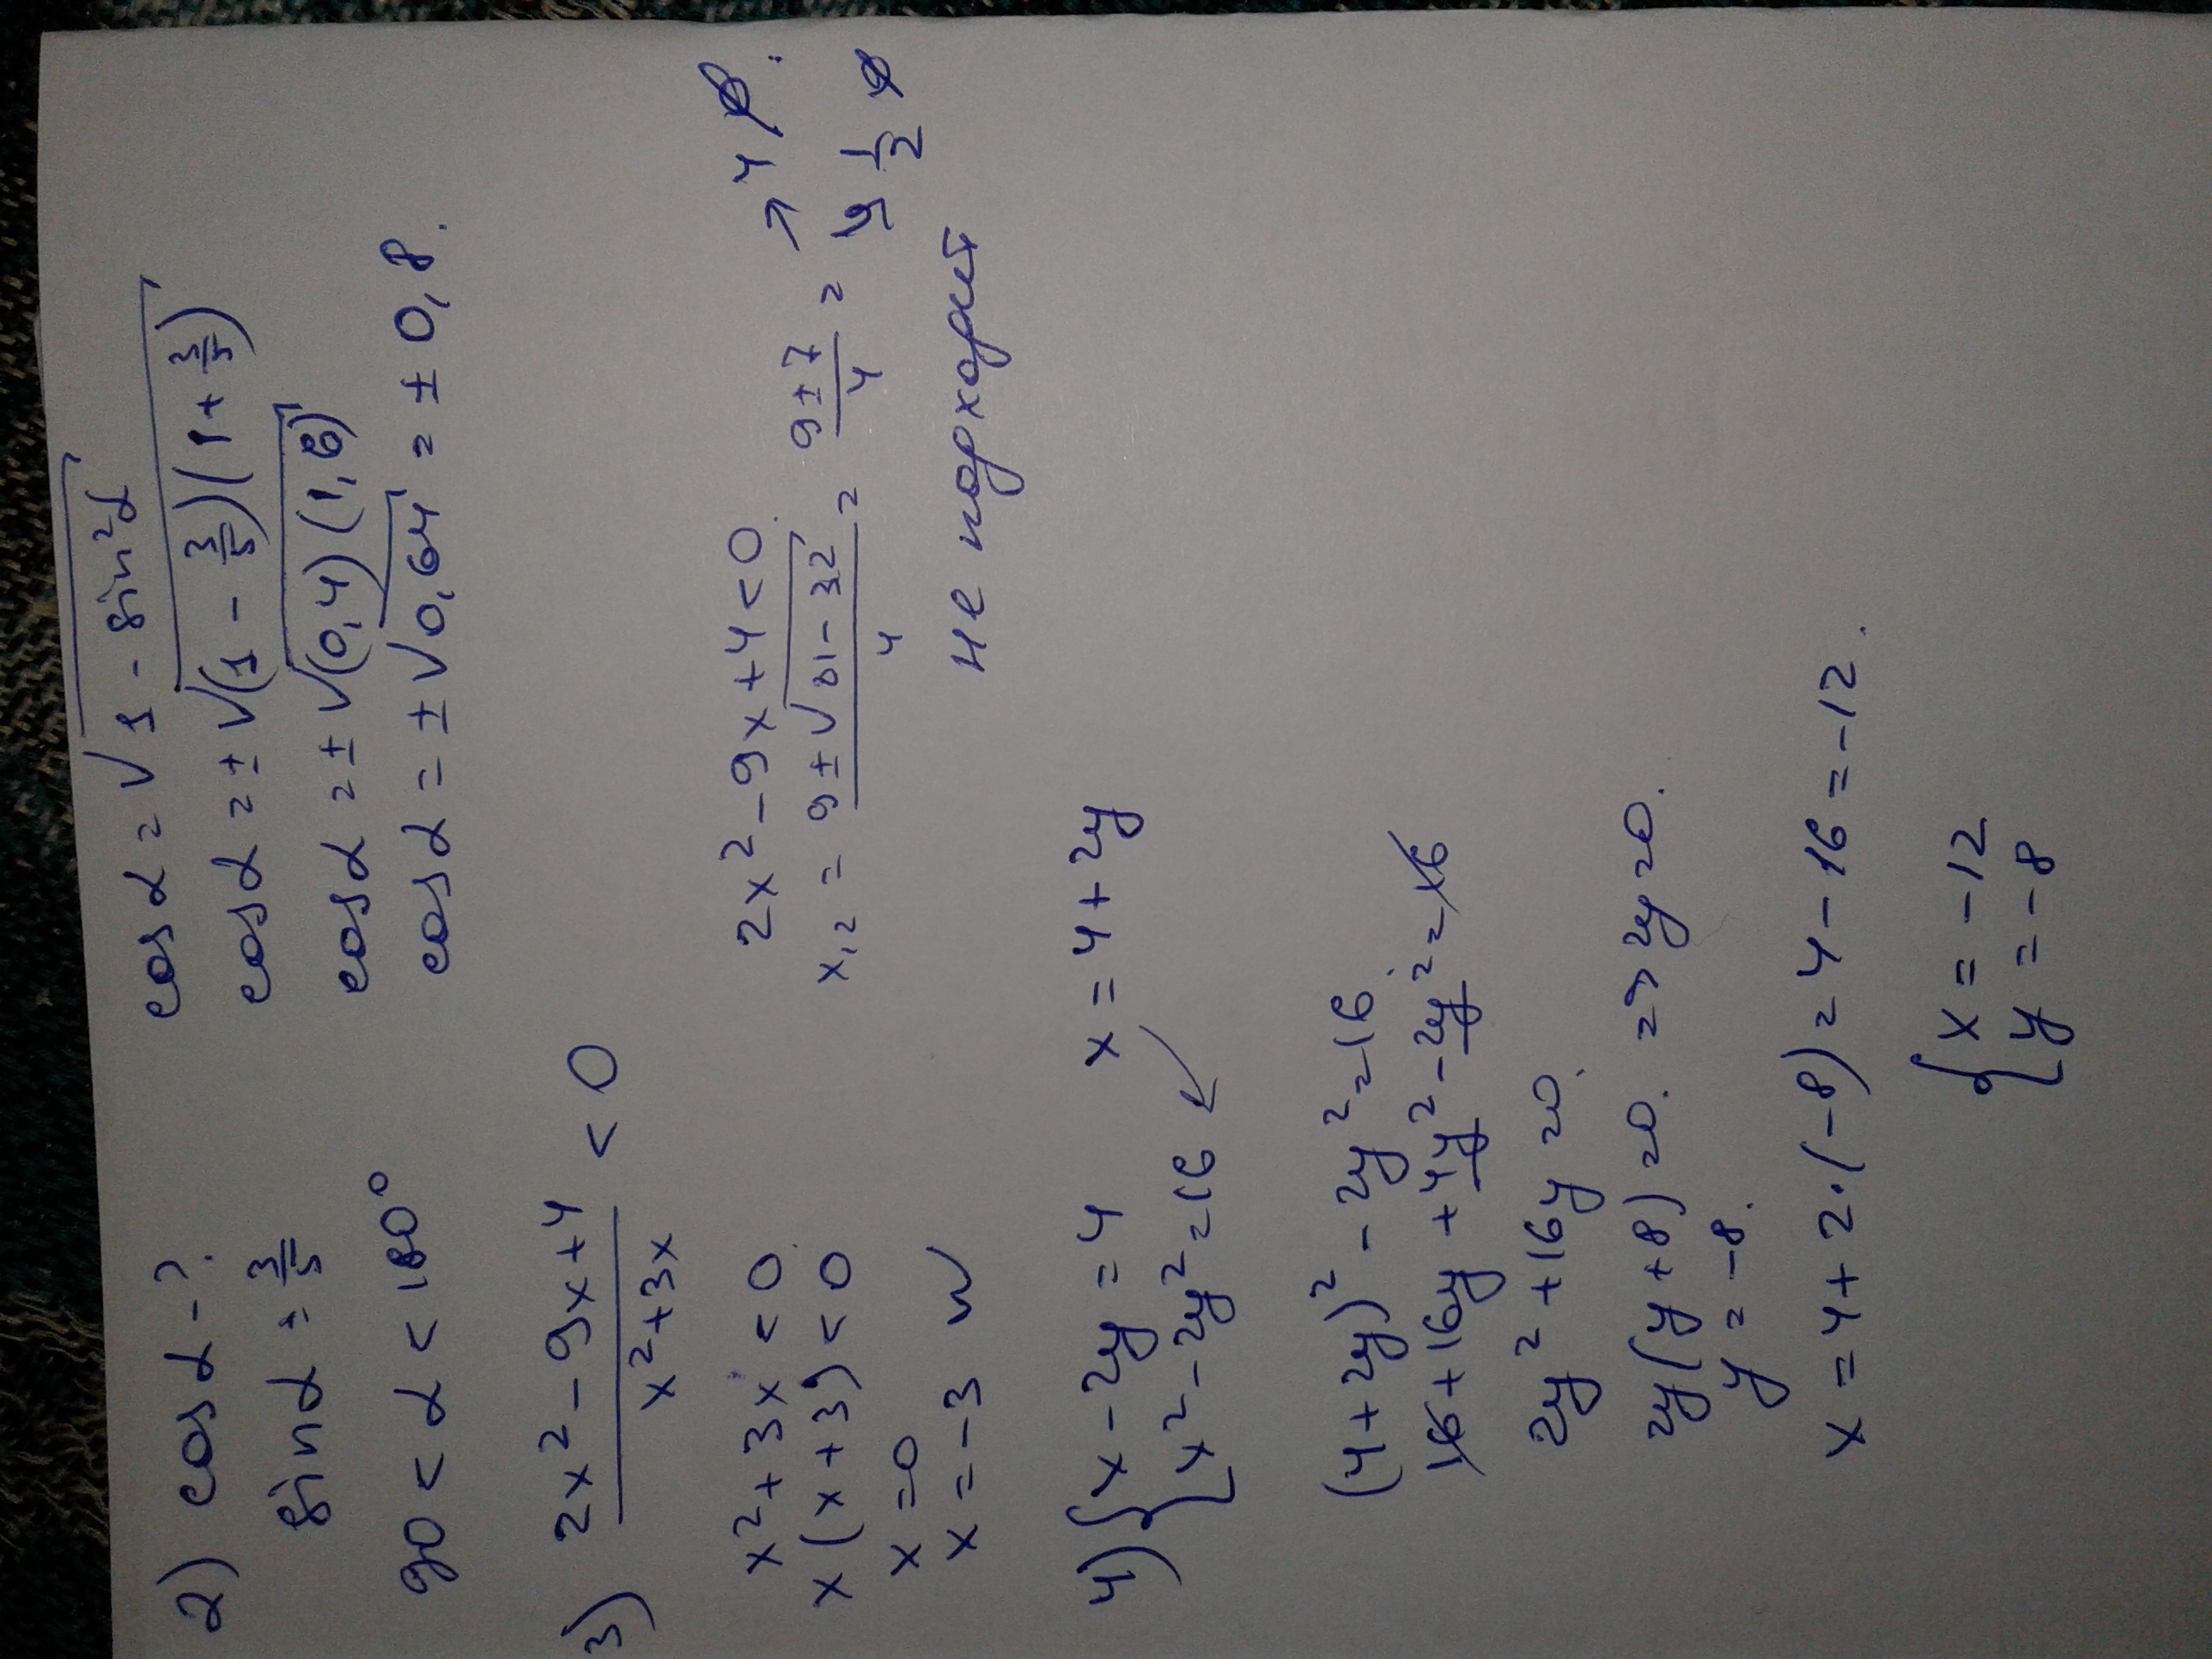 2) cos α - ?
sin α = 3/5
90 < α < 180°
cos α = √(1 - sin²α)
cos α = ± √((1 - 3/5)(1 + 3/5))
cos α = ± √((0,4)(1,6))
cos α = ± √0,64 = ± 0,8.
3) (2x² - 9x + 4)/(x² + 3x) < 0
x² + 3x < 0
x(x + 3) < 0
x = 0
x = -3
2x² - 9x + 4 < 0
x₁,₂ = (9 ± √(81 - 32))/4 = (9 ± 7)/4 = ↗ 4 ∅.
↘ 1/2 ∅
не подходит
4) { x - 2y = 4
x² - 2y² = 16
x = 4 + 2y
(4 + 2y)² - 2y² = 16
16 + 16y + 4y² - 2y² = 16
2y² + 16y = 0.
2y(y + 8) = 0. => 2y = 0.
y = -8.
x = 4 + 2·(-8) = 4 - 16 = -12.
{ x = -12
y = -8